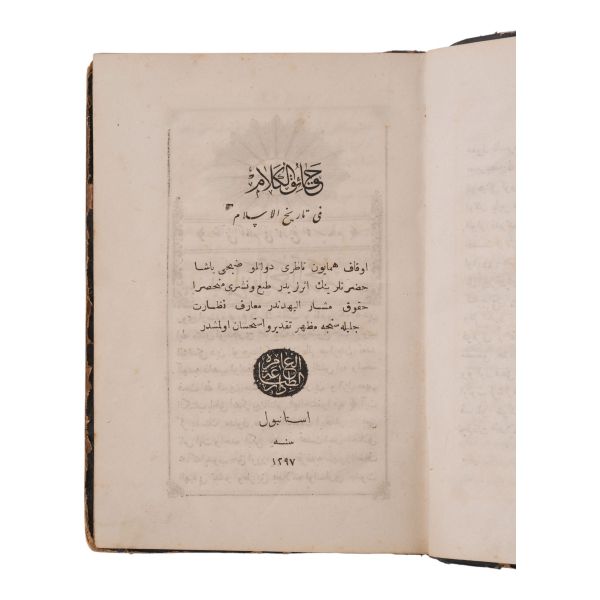 حقائق الكلام
فی تاریخ الاسلام
اوقاف همایون ناظری دولتلو صبحی پاشا
حضرتلرینك اثرلریدر طبع و نشری منحصرا
حقوق مشار الیهدندر معارف نظارت
جلیله سنجه مظهر تقدیر و استحسان اولمشدر
استانبول
سنه
١٢٩٧